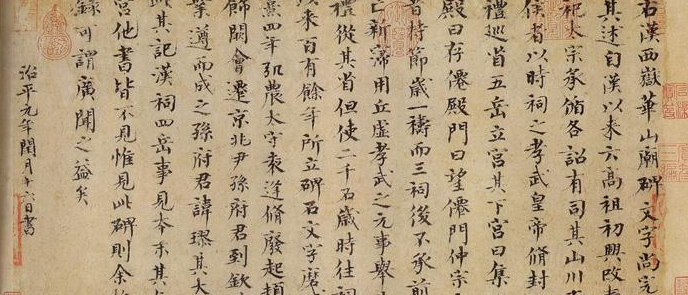 右漢西嶽華山廟碑文字尚完
其述自漢以來云高祖初興改
祀太宗承循各詔有司其山川
侯者以時祠之孝武皇帝脩封
禮巡省五岳立宮其下宮曰集
殿曰存僊殿門曰望僊門仲宗
者持節歲一禱而三祠後不承前
亡新寖用丘虛孝武之元事舉
禮從其省但使二千石歲時往祠
來百有餘年所立碑石文字磨
熹四年弘農太守袁逢脩廢起頓
飾闕會遷京兆尹孫府君到欽
業遵而成之孫府君諱璆其大
其記漢祠四岳事見本末其
宮他書皆不見惟見此碑則余
錄可謂廣聞之益矣
治平元年閏月十六日書